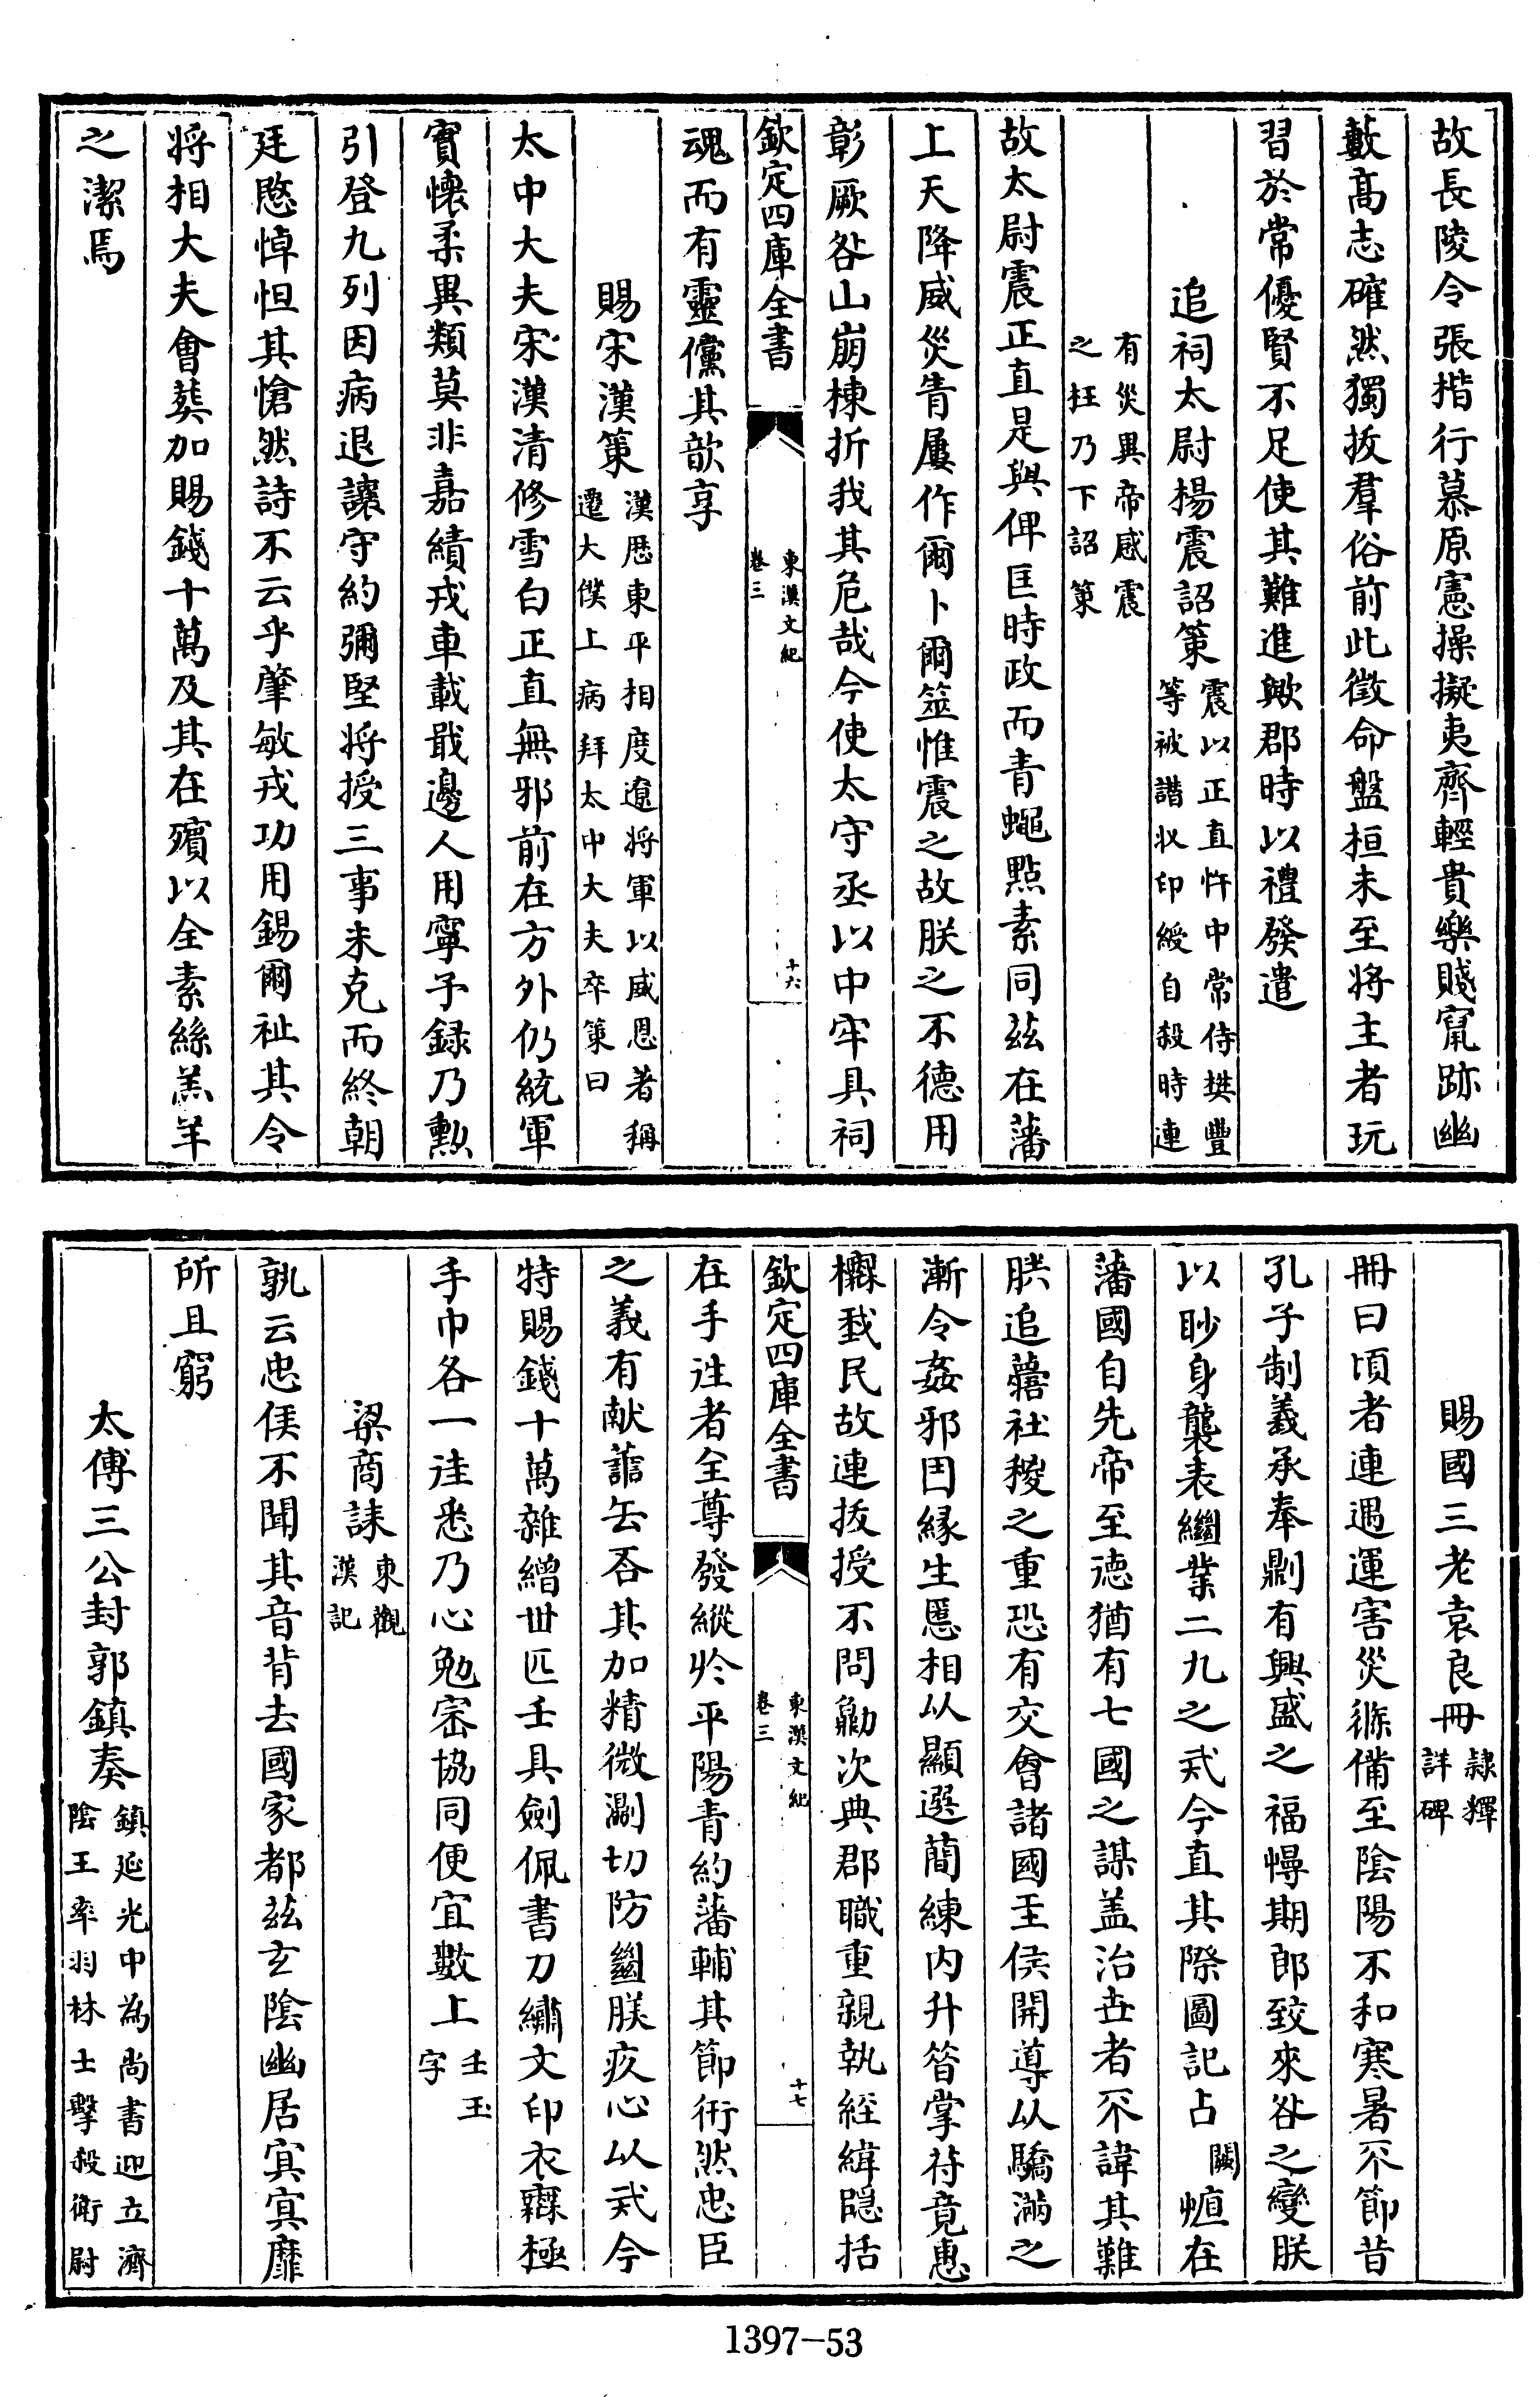 故長陵令張楷行慕原憲操擬夷齊輕貴樂賤竄跡幽
藪髙志確然獨拔羣俗前此徵命盤桓未至将主者玩
習於常優賢不足使其難進歟郡時以禮發遣
追祠太尉楊震詔策震以正直忤中常侍樊豐
等被譖收印綬自殺時連
有災異帝感震
之枉乃下詔策
故太尉震正直是與俾匡時政而青蠅點素同兹在藩
上天降威災眚屢作爾卜爾筮惟震之故朕之不德用
彰厥咎山崩棟折我其危哉今使太守丞以中牢具祠
欽定四庫全書
東漢文紀
卷三
十六
魂而有靈儻其歆享
賜宋漢策漢歴東平相度遼将軍以威恩著稱
遷大僕上病拜太中大夫卒策曰
太中大夫宋漢清修雪白正直無邪前在方外仍統軍
實懷柔異類莫非嘉績戎車載戢邊人用寧予録乃勲
引登九列因病退讓守約彌堅将授三事未克而終朝
廷愍悼怛其愴然詩不云乎肇敏戎功用錫爾祉其令
将相大夫會葬加賜錢十萬及其在殯以全素絲羔羊
之潔焉
賜國三老袁良冊隷釋
詳碑
冊曰頃者連遇運害災㣇備至隂陽不和寒暑不節昔
孔子制義承奉剛有興盛之福㥧期郎致來咎之變朕
以眇身襲表繼業二九之戒今直其際圖記占闕𢛢在
藩國自先帝至徳猶有七國之謀盖治世者不諱其難
朕追蘁社稷之重恐有交會諸國王侯開導以驕滿之
漸令姦邪因縁生慝相以顯選蕑練内升晉掌符竟惠
㰕我民故連拔授不問勮次典郡職重親執經緯隠括
欽定四庫全書
東漢文紀
卷三
十七
在手往者全尊發縱於平陽青約藩輔其節衎然忠臣
之義有献𧫷去否其加精微㴉切防𢇍朕疚心以戒今
特賜錢十萬雜繒丗匹玉具劍佩書刀繡文印衣𥜽極
手巾各一往悉乃心勉宻協同便宜數上玉玉
字
梁商誄東觀
漢記
孰云忠侯不聞其音背去國家都兹玄隂幽居㝠㝠靡
所且窮
太傅三公封郭鎮奏鎮延光中為尚書迎立濟
隂王率羽林士擊殺衛尉
1397-53